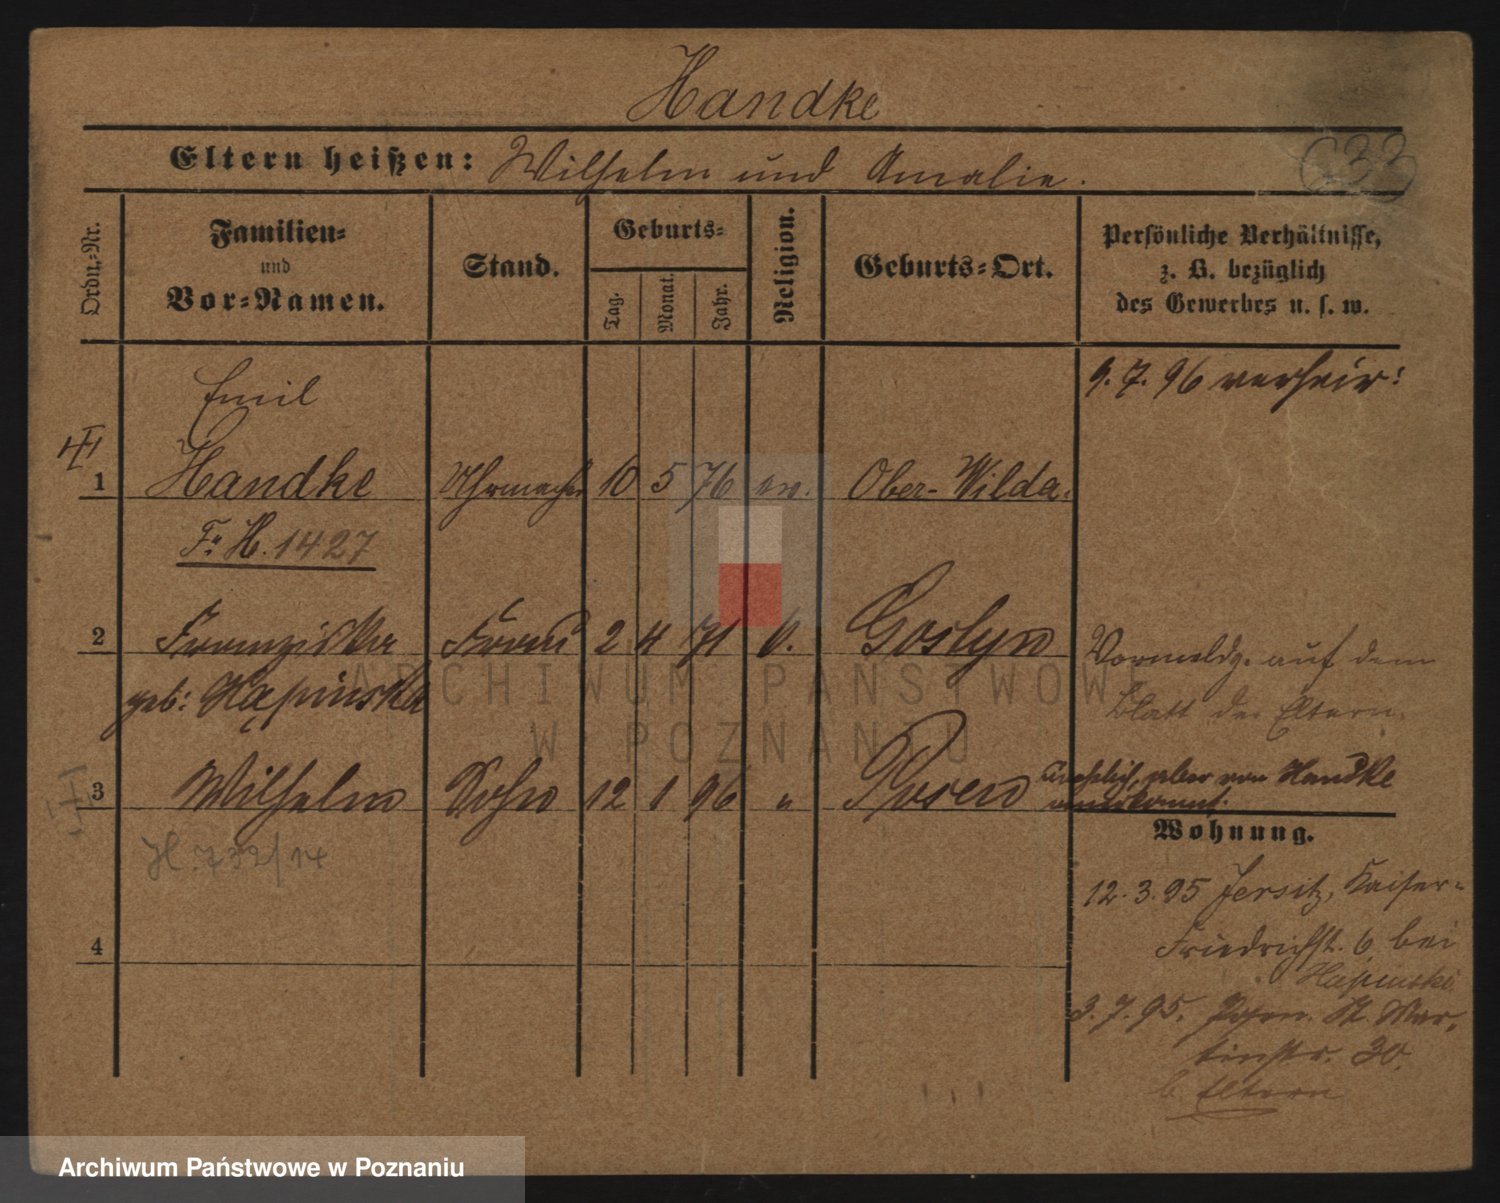 Handke
Eltern heißen: Wilhelm und Amalie.
633
Ordn.-Nr.
Familien-
und
Vor-Namen.
Stand.
Geburts-
Tag.
Monat.
Jahr.
Religion.
Geburts-Ort.
Persönliche Verhältnisse,
z. B. bezüglich
des Gewerbes u. s. w.
Emil
9. 7. 96 verheir:
1 Handke Uhrmacher 10 5 76 ev. Ober-Wilda.
Fr H. 1427
2 Franziska Frau 2 4 71 k. Goslyn
Vormeldg. auf dem
geb: Kapinska
Blatt der Eltern.
3 Wilhelm Sohn 12 1 96 " Posen
unehelich, aber von Handke
anerkannt.
Wohnung.
H. 732/14
12. 3. 95 Jersitz, Kaiser-
Friedrichst. 6 bei
Kapinski.
4
3. 7. 95. Posen. St. Mar-
tinstr. 30.
b. Eltern
ARCHIWUM PAŃSTWOWE
W POZNANIU
Archiwum Państwowe w Poznaniu